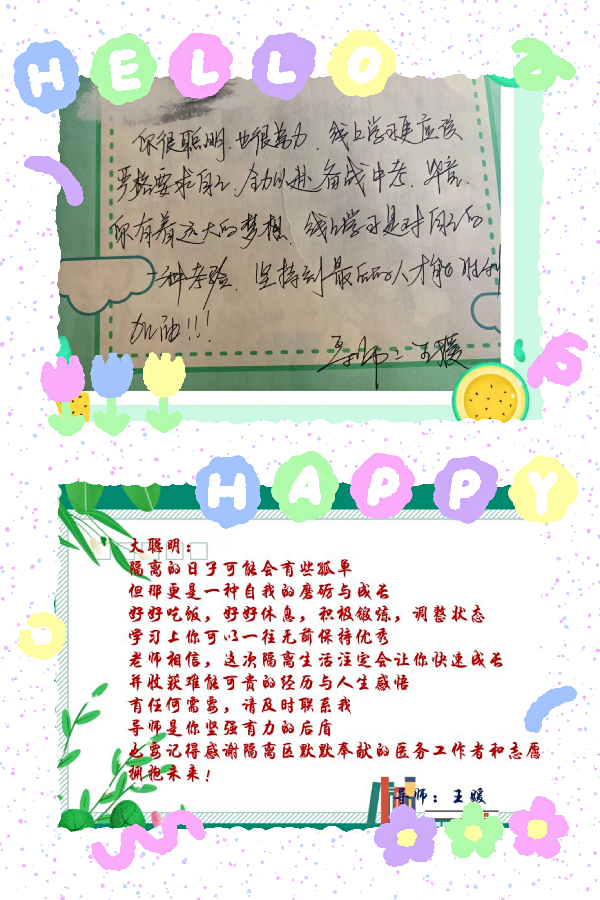 HELLO
你很聪明,也很努力,线上学习更应该
严格要求自己,全力以赴备战中考.毕竟,
你有着远大的梦想.线上学习是对自己的
一种考验.坚持到最后的人才能胜利
加油!!!
导师:王媛
HAPPY
大聪明:
隔离的日子可能会有些孤单
但那更是一种自我的磨砺与成长
好好吃饭,好好休息,积极锻炼,调整状态
学习上你可以一往无前保持优秀
老师相信,这次隔离生活注定会让你快速成长
并收获难能可贵的经历与人生感悟
有任何需要,请及时联系我
导师是你坚强有力的后盾
也要记得感谢隔离区默默奉献的医务工作者和志愿
拥抱未来!
导师:王媛